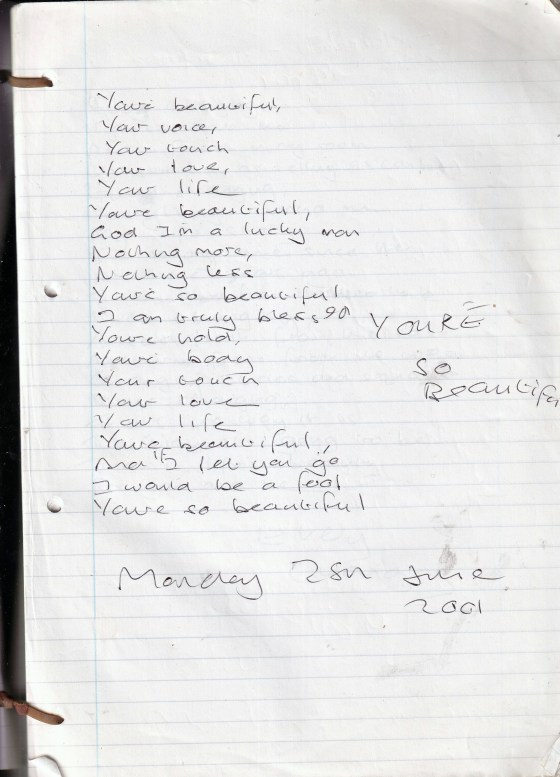 Youre beautiful,
Your voice,
Your touch
Your love,
Your life
Youre beautiful,
God Im a lucky man
Nothing more,
Nothing less
Youre so beautiful
I am truly blessed
Youre hold,
Youre body
Your touch
Your love
Your life
Youre beautiful,
And if I let you go
I would be a fool
Youre so beautiful
YOURE
so
Beautiful
Monday
June
2001